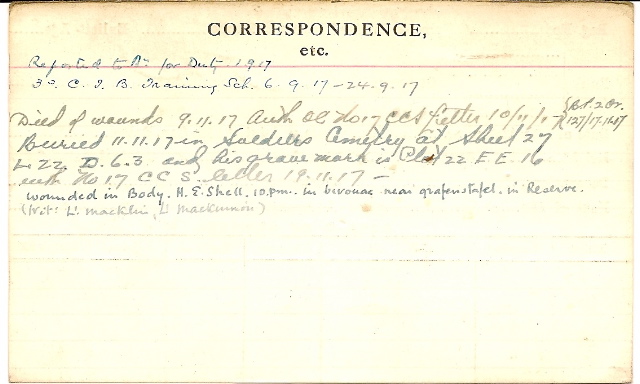 CORRESPONDENCE,
etc.
Reported to Bn for Duty. 1917
3rd C. I. B. Training Sch. 6.9.17 - 24.9.17
Died of wounds 9.11.17 Auth OC No 17 CCS letter 10/11/17 { Bt. 2 Or. 127/17.11.17
Buried 11.11.17 in Soldiers Cemetry at Sheet 27
L 22. D. 6.3 and his grave mark is Plot 22 E E 16
auth No 17 C C S letter 19.11.17 -
wounded in Body. H.E. Shell. 10.p.m. in bivouac near grafenstafel. in Reserve.
(Wit: Lt Macklin, Lt Mackinnon)